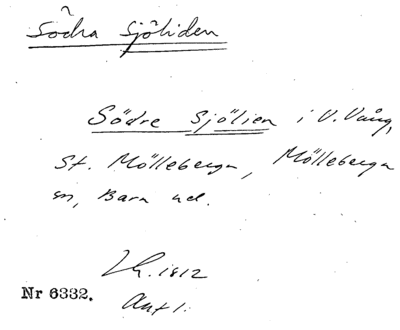 Södra Sjöliden
Södre Sjölien i V. Vång,
St. Mölleberga, Mölleberga
sn, Bara hd.
1812
Nr 6332.